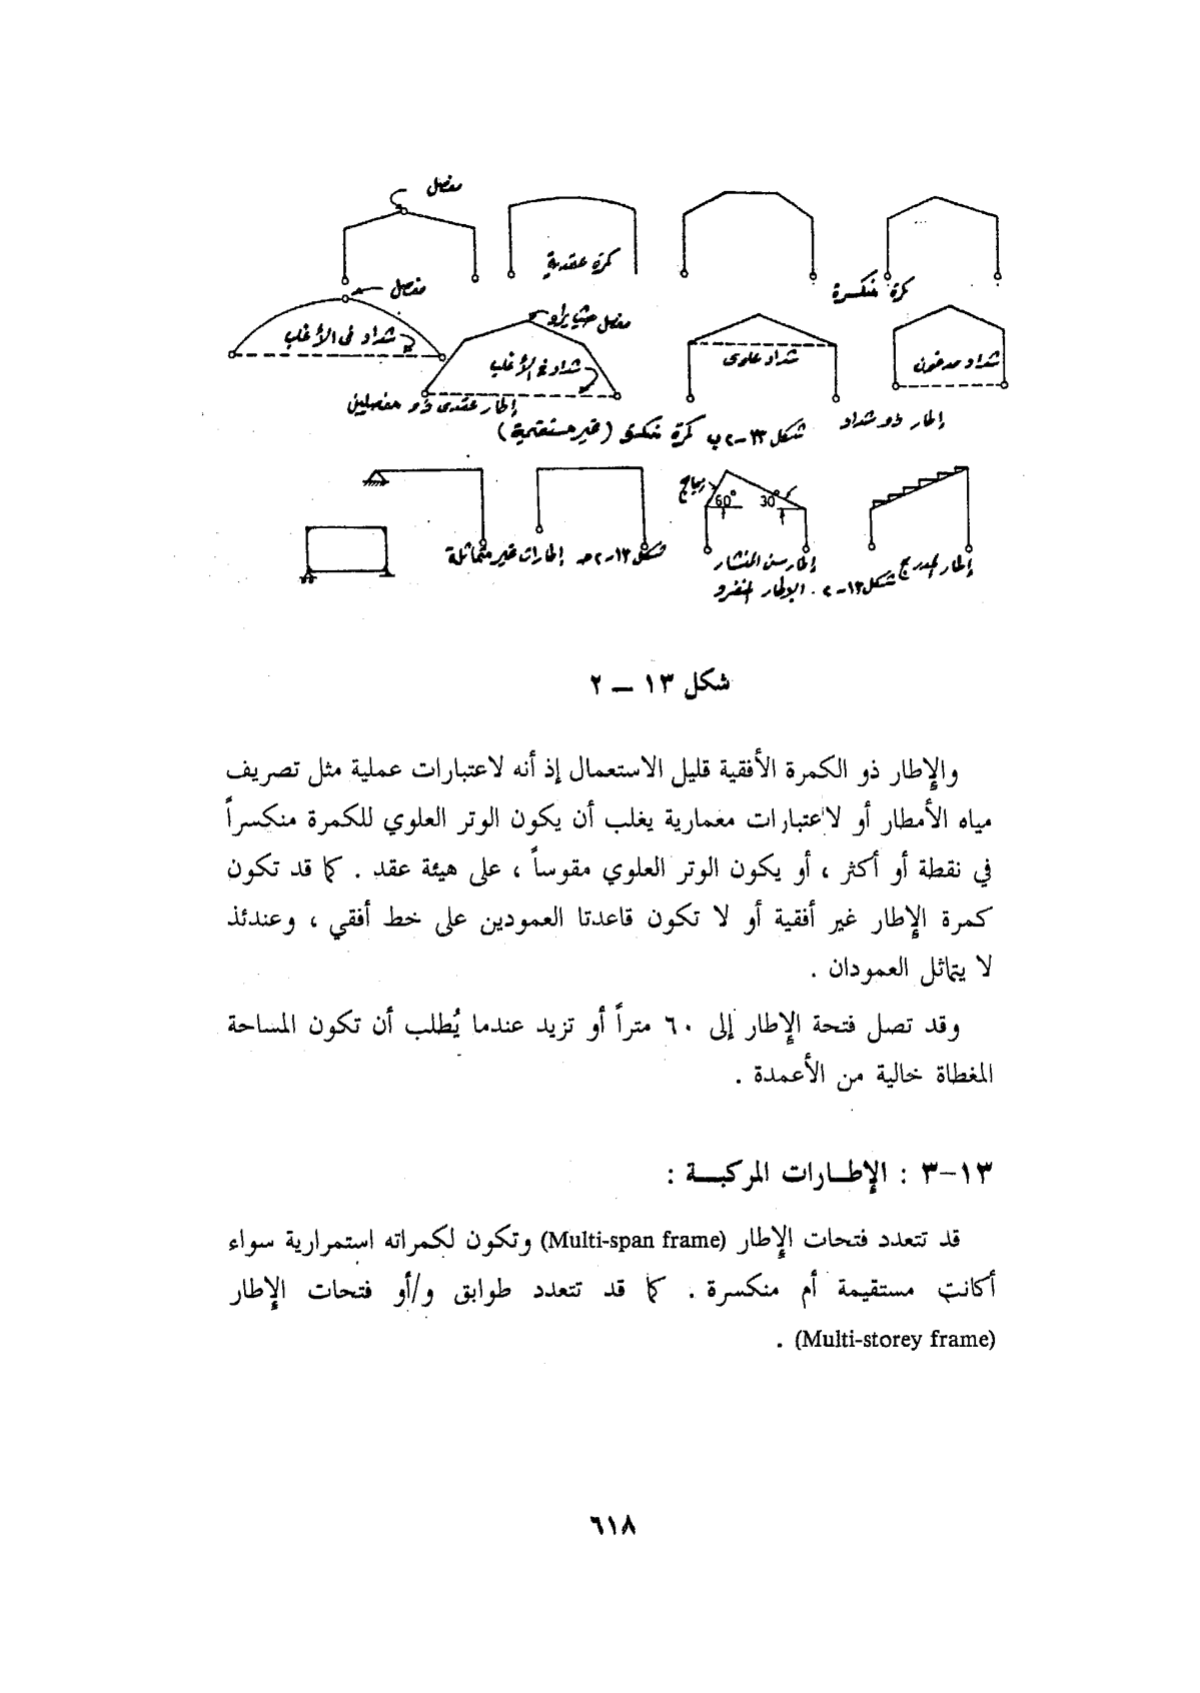 مفصل
كمرة عقدية
كمرة منكسرة
مفصل
شداد في الأغلب
مفصل حيثما يراد
شداد في الأغلب
شداد علوى
شداد مدفون
إطار عقدى ذو مفصلين
إطار ذو شداد
شكل ١٣-٢ب كمرة منكسرة (غير مستقيمة)
زجاج
60°
30°
شكل ١٣-٢حـ إطارات غير متماثلة
إطار سن المنشار
إطار المدرج
شكل ١٣-٢ . الإطار المنفرد
شكل ١٣ – ٢
والإطار ذو الكمرة الأفقية قليل الاستعمال إذ أنه لاعتبارات عملية مثل تصريف
مياه الأمطار أو لاعتبارات معمارية يغلب أن يكون الوتر العلوي للكمرة منكسراً
في نقطة أو أكثر ، أو يكون الوتر العلوي مقوساً ، على هيئة عقد . كما قد تكون
كمرة الإطار غير أفقية أو لا تكون قاعدتا العمودين على خط أفقي ، وعندئذ
لا يتماثل العمودان .
وقد تصل فتحة الإطار إلى ٦٠ متراً أو تزيد عندما يُطلب أن تكون المساحة
المغطاة خالية من الأعمدة .
١٣–٣ : الإطــارات المركبــة :
قد تتعدد فتحات الإطار (Multi-span frame) وتكون لكمراته استمرارية سواء
أكانت مستقيمة أم منكسرة . كما قد تتعدد طوابق و/أو فتحات الإطار
(Multi-storey frame) .
٦١٨